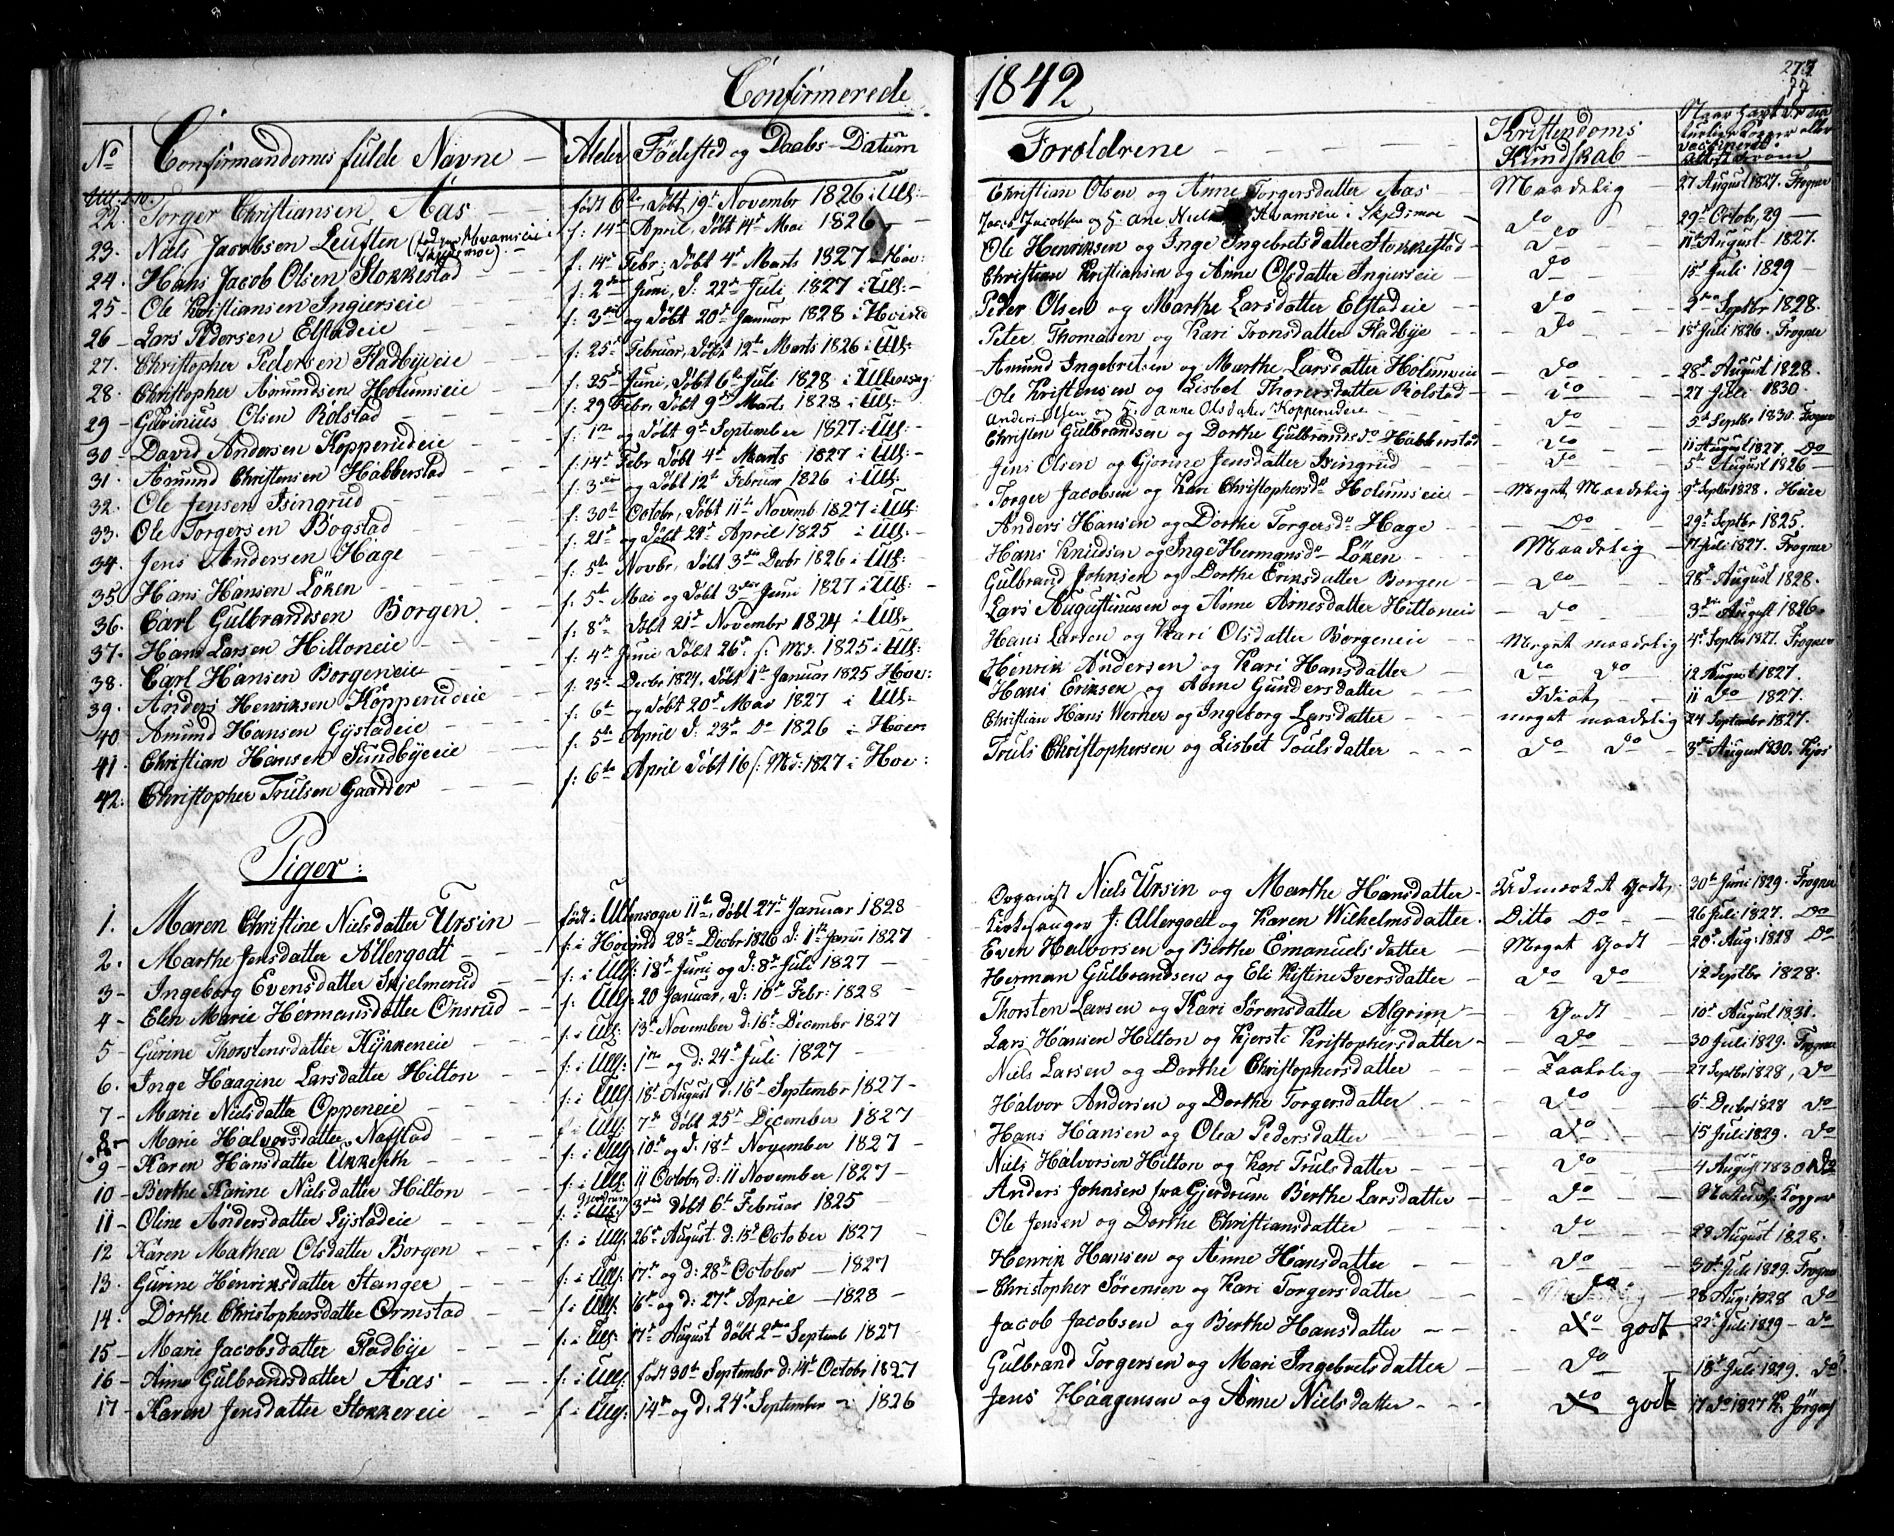 Confirmerede 1842
273
No Confirmandernes fulde Navne Alder Fødested og Daabs-Datum Foreldrene Kristendoms Kundskab
22. Torger Christiansen Aas født 6te, døbt 19de Novembr 1826 i Ull: Christian Olsen og Anne Torgersdatter Aas Maadelig 27 August 1827. Frogner
23. Niels Jacobsen Leuften f. 14de April, døbt 14de Mai 1826 Jacob Jacobsen og Ane Kvamseie i Skedsmoe Do 29de Octob, 29
24. Hans Jacob Olsen Stokkestad f. 14de Febr: døbt 4de Marts 1827 i Hov: Ole Henriksen og Inge Ingebretsdatter Stokkestad Do 11te August 1827.
25 Ole Kristiansen Ingierseie f. 2den Juni, d: 22de Juli 1827 i Ull: Christian Kristiansen og Anne Olsdatter Ingerseie Do 15de Juli 1829
26 Lars Pedersen Elstadeie f. 3die og døbt 20de Januar 1828 i Hovind Peder Olsen og Marthe Larsdatter Elstadeie Do 2den Septbr 1828.
27. Christopher Pedersen Fladbyeie f: 25de Februar, døbt 12te Marts 1826 i Ull: Peter Thomasen og Kari Tronsdatter Fladbye Do 15de Juli 1826. Frogner
28. Christopher Amundsen Holumseie f: 25de Juni, døbt 6te Juli 1828 i Ullensag: Amund Ingebretsen og Marthe Larsdatter Holumseie Do 28de August 1828.
29 Gulvinius Olsen Rolstad f: 29 Febr: døbt 9de Marts 1828 i Ull: Ole Kristensen og Lisbet Thorersdatter Rolstad Do 27 Juli 1830.
30 David Andersen Kopperudeie f: 1ste og døbt 9de September 1827 i Ull: Anders Olsen og Anne Olsdatter Kopperudeie Do 5te Septbr 1830. Frogner
31. Amund Christensen Habberstad f: 14de Febr døbt 4de Marts 1827 i Ull: Christen Gulbrandsen og Dorthe Gulbrandsdr Habberstad Do 11 August 1827. Do
32. Ole Jensen Isingrud f: 3die og døbt 12te Februar 1826 i Ull: Jens Olsen og Gjorine Jensdatter Isingrud Do 5te August 1826
33. Ole Torgersen Bogstad f: 30te Octobr, døbt 11te Novemb 1827 i Ull: Torger Jacobsen og Kari Christophersdr Holumseie Meget Maadelig 9de Septbr 1828. Heier
34. Jens Andersen Hage f: 21de og døbt 24de April 1825 i Ull: Anders Hansen og Dorthe Torgersdr Hage Do 29de Septbr 1825.
35. Hans Hansen Löken f. 5te Novbr, døbt 3die Decbr 1826 i Ull: Hans Knudsen og Inge Hermansdr Löken Maadelig 17 Juli 1827. Frogner
36. Carl Gulbrandsen Borgen f: 5te Mai og døbt 3die Juni 1827 i Ull: Gulbrand Johnsen og Dorthe Eriksdatter Borgen Do 28de August 1828.
37. Hans Larsen Hiltoneie f: 8de døbt 21de Novembr 1824 i Ull: Lars Augustinusen og Anne Arnesdatter Hiltoneie Do 3die August 1826.
38. Carl Hansen Borgeneie f: 4de Juni døbt 26de s. Md: 1825 i Ull: Hans Larsen og Kari Olsdatter Borgeneie Meget maadelig 4de Septbr 1827. Frogner
39. Anders Henriksen Kopperudeie f: 25de Decbr 1824, døbt 1ste Januar 1825 Hov: Henrik Andersen og Kari Hansdatter Do Do 12 August 1827.
40 Amund Hansen Gystadeie f: 6te og døbt 20de Mai 1827 i Ull: Hans Eriksen og Anne Gundersdatter Idiot 11 Do 1827.
41. Christian Hansen Sundbyeie f: 5te April d: 23de Do 1826 i Hoven Christian Hans Werner og Ingeborg Larsdatter meget maadelig 24 Septembr 1827.
42. Christopher Trulsen Gaarder f: 6te April døbt 16 s: Md: 1827 i Hov: Truls Christophersen og Lisbet Toulsdatter Do Do 3die August 1830.
Piger:
1. Maren Christine Nielsdatter Ursin født i Ullensager 11te, døbt 27de Januar 1828 Organist Niels Ursin og Marthe Hansdatter Udmærket Godt, 30te Juni 1829. Frogner
2. Marthe Jensdatter Allergodt f: i Hovind 28de Decbr 1826 d: 1ste Janu 1827 Kirkesanger J: Allergodt og Karen Wilhelmsdatter Ditto Do 26 Juli 1827. Do
3 Ingeborg Evensdatter Skjelmerud f: i Ull: 18de Juni og d: 8de Juli 1827 Even Halvorsen og Berthe Emanuelsdatter Meget Godt 20de Aug: 1828 Do
4 Elen Marie Hermansdatter Onsrud f: Ull: 20 Januar, d: 10de Febr: 1828 Herman Gulbrandsen og Eli Kistine Iversdatter Do Do 12 Septbr 1828.
5 Gurine Thorstensdatter Kykkeneie f: i Ull: 13de November d: 16de Decembr 1827 Thorsten Larsen og Kari Sørensdatter Algrim Godt 10de August 1831.
6. Inge Haagine Larsdatter Hilton f: i Ull: 1ste og d: 24de Juli 1827 Lars Hansen Hilton og Kjersti Kristophersdatter Do 30 Juli 1829. Frogner
7 Marie Nielsdatter Oppeneie f: i Ull: 18de August d: 16de Septembr 1827 Niels Larsen og Dorthe Christophersdatter Taalelig 27 Septbr 1828, Do
8 Marie Halvorsdatter Nafstad f: i Ull: 7de døbt 25de December 1827 Halvor Andersen og Dorthe Torgersdatter Do 6te Decbr 1828 Do
9 Karen Hansdatter Ukkestk f: i Ull: 10de og d: 18de November 1827 Hans Hansen og Olea Pedersdatter Do 15 Juli 1829. Do
10 Berthe Karine Nielsdatter Hilton f: i Ull: 11 Octobr, d: 11 November 1827 Niels Halvorsen Hilton og Kari Trulsdatter Do 4 August 1830 Do
11 Oline Andersdatter Lystadeie f: i Gjerdrum 3die døbt 6te Februar 1825 Anders Johnsen fra Gjerdrum Berthe Larsdatter Do Naturl: Kopper
12 Karen Mathea Olsdatter Borgen f: i Ull: 26de August d: 15de October 1827 Ole Jensen og Dorthe Christiansdatter Do 29 August 1828.
13. Gurine Henriksdatter Stanger f: i Ull: 17de og d: 28de October 1827 Henrik Hansen og Anne Hansdatter Do 30te Juli 1829. Frogner
14. Dorthe Christophersdatter Ormstad f: i Ull: 16de og d: 27de April 1828 Christopher Sørensen og Kari Torgersdatter Do 28 Aug: 1828 Do
15 Marie Jacobsdatter Fladbye f: i Ull: 17de August døbt 2den Septemb 1827 Jacob Jacobsen og Berthe Hansdatter Do godt 22de Juli 1829 Do
16 Anne Gulbrandsdatter Aas f: i Ull: født 30te Septembr d: 14de Octobr 1827 Gulbrand Torgersen og Mari Ingebretsdatter Do 18de Juli 1829. Do
17 Karen Jensdatter Stokkereie f: i Ull: 14de og d: 24de September 1826 Jens Haagensen og Anne Nielsdatter Do godt 17 Do 1827